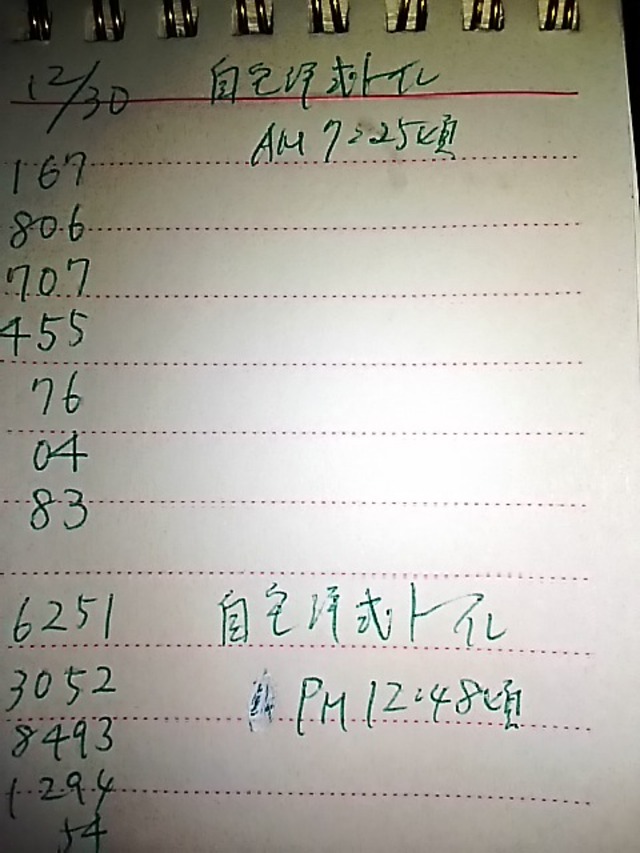 12/30 自宅洋式トイレ
AM 7:25頃
167
806
707
455
76
04
83
6251 自宅洋式トイレ
3052 PM 12:48頃
8493
1294
54